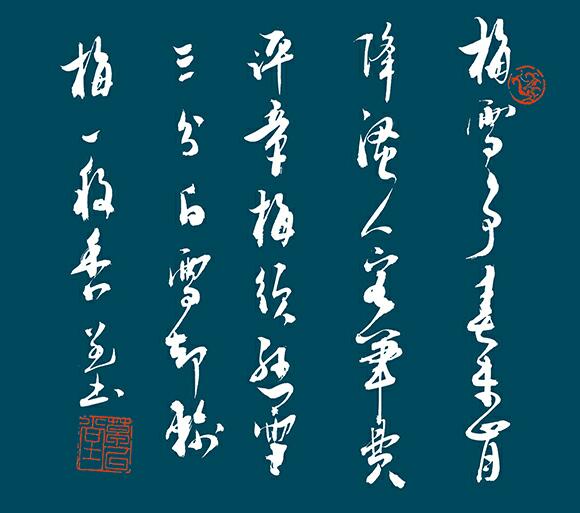 梅雪争春未肯
降骚人阁筆费
评章梅须逊雪
三分白雪却输
梅一段香